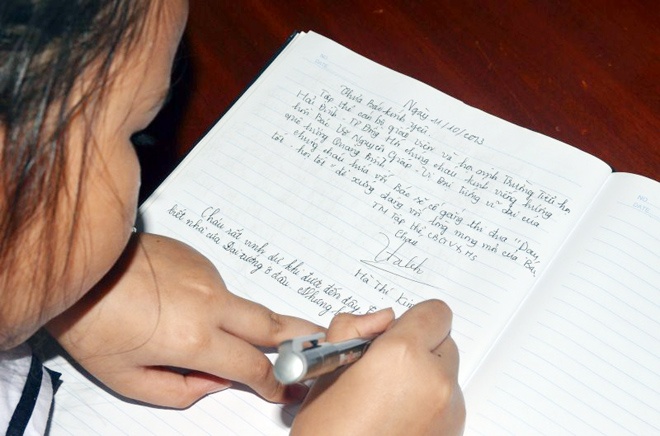 Ngày 11/10/2013
Thưa Bác kính yêu,
Tập thể cán bộ giáo viên và học sinh Trường Tiểu học
Hải Đình, TP Đồng Hới chúng cháu kính viếng hương
hồn Bác Võ Nguyên Giáp - Vị Đại Tướng vĩ đại của
quê hương Quảng Bình.
Chúng cháu hứa với Bác sẽ cố gắng thi đua "Dạy
tốt - học tốt" để xứng đáng với lòng mong mỏi của Bác.
TM Tập thể CBGV, HS
Cháu
Hà Thị Kim
Cháu rất vinh dự khi được đến đây,
biết nhà của Đại tướng ở đâu. Nhưng